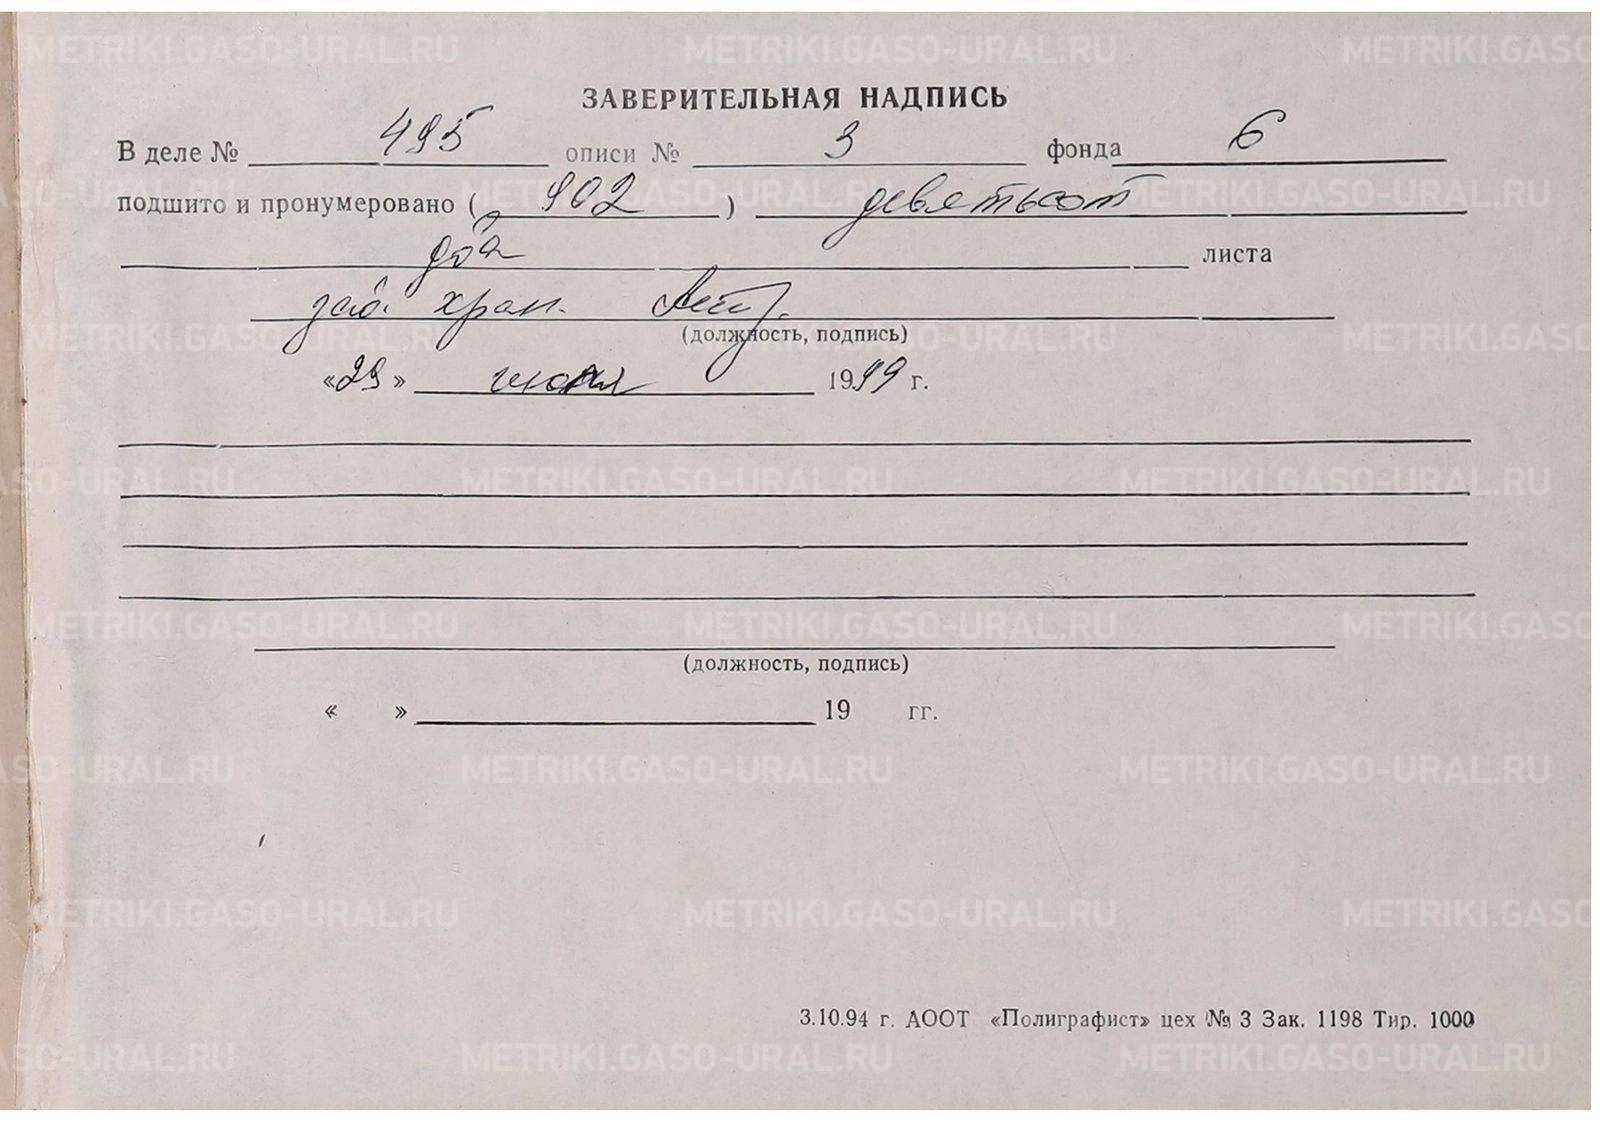 METRIKI.GASO-URAL.RU
ЗАВЕРИТЕЛЬНАЯ НАДПИСЬ
В деле № 495 описи № 3 фонда 6
подшито и пронумеровано ( 902 ) девятьсот
два листа
зав. хран.
(должность, подпись)
«29» июня 1999 г.
(должность, подпись)
« » 19 гг.
3.10.94 г. АООТ «Полиграфист» цех № 3 Зак. 1198 Тир. 1000